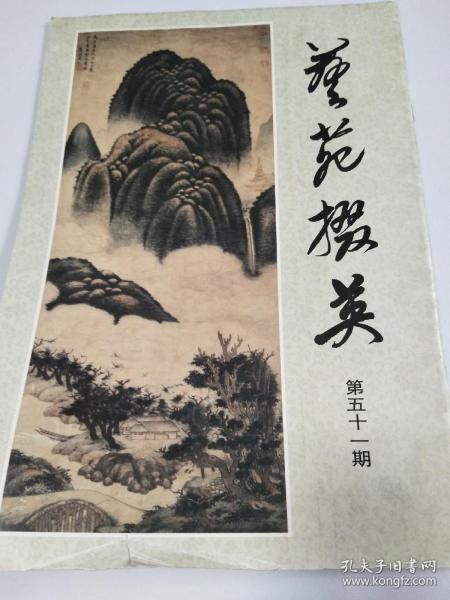 藝苑掇英
第五十一期
孔夫子旧书网
www.kongfz.com